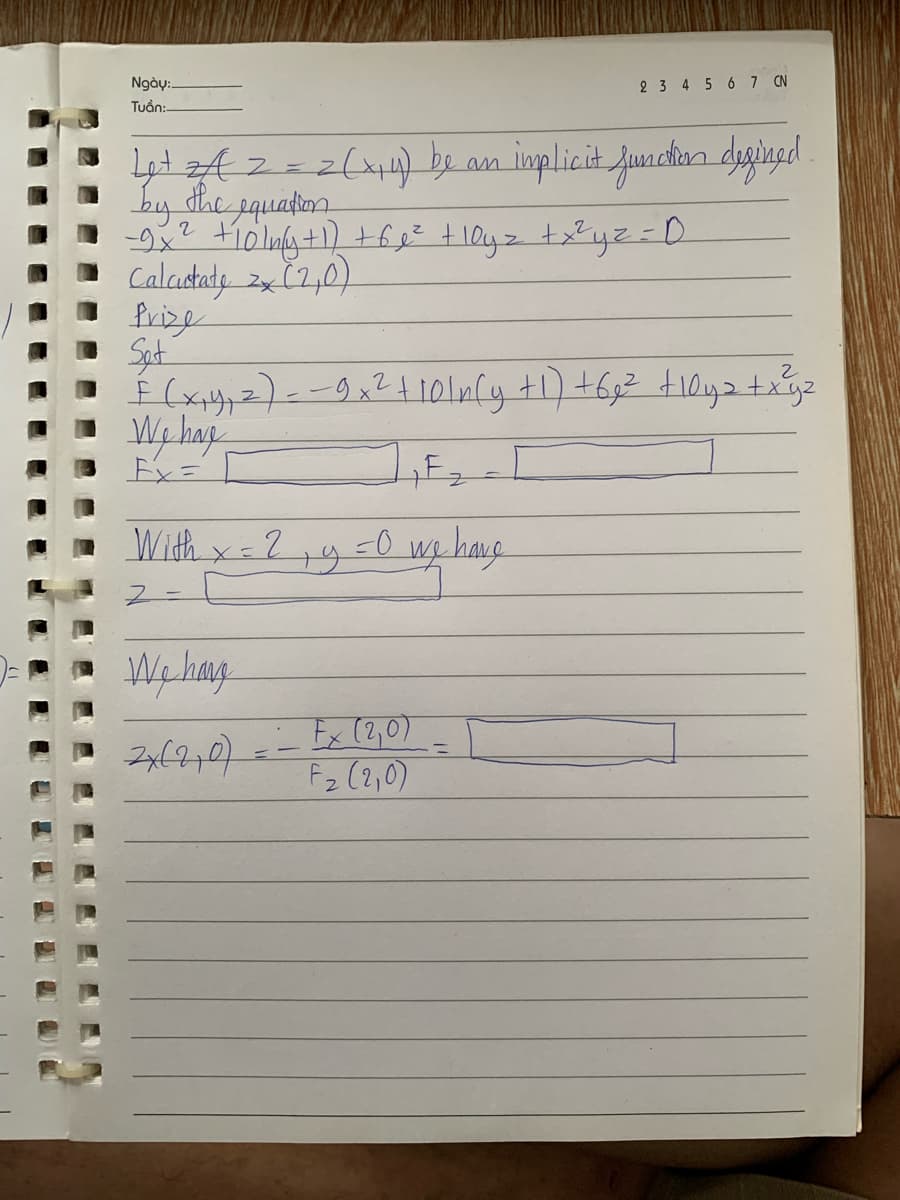 Ngày:
2 3 4 5 6 7 CN
Tuần:
Let z = z(x,y) be an implicit function defined
by the equation
-9x² + 10ln(y+1) + 6e^z + 10yz + x²yz = 0
Calculate z_x (2,0)
Prize
Set
F(x,y,z) = -9x² + 10ln(y+1) + 6e^z + 10yz + x²yz
We have
F_x = , F_z =
With x = 2, y = 0 we have
z =
We have
z_x(2,0) = - F_x(2,0) / F_z(2,0) =